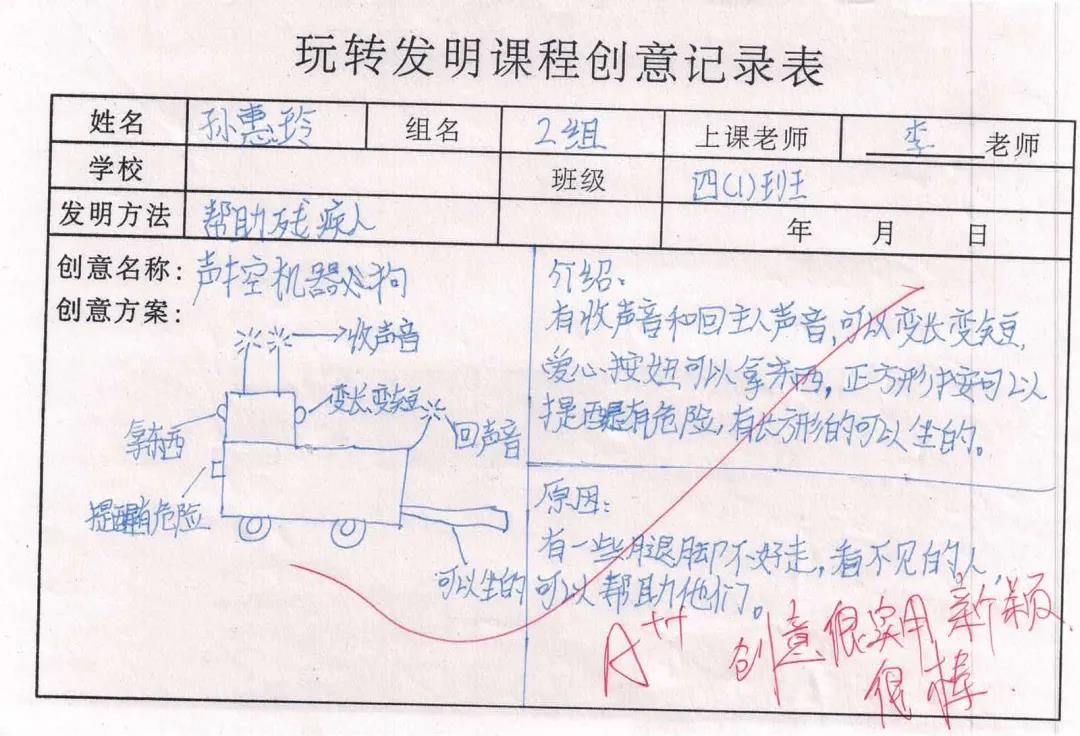 玩转发明课程创意记录表
姓名 孙惠玲 组名 2组 上课老师 李 老师
学校 班级 四(1)班
发明方法 帮助残疾人 年 月 日
创意名称: 声控机器小狗
创意方案:
收声音
变长变短
拿东西
回声音
提醒有危险
可以坐的
介绍:
有收声音和回主人声音,可以变长变短,
爱心按妞可以拿东西,正方形按可以
提醒有危险,有长方形的可以坐的。
原因:
有一些腿脚不好走,看不见的人,
可以帮助他们。
A++ 创意很实用新颖.
很棒.